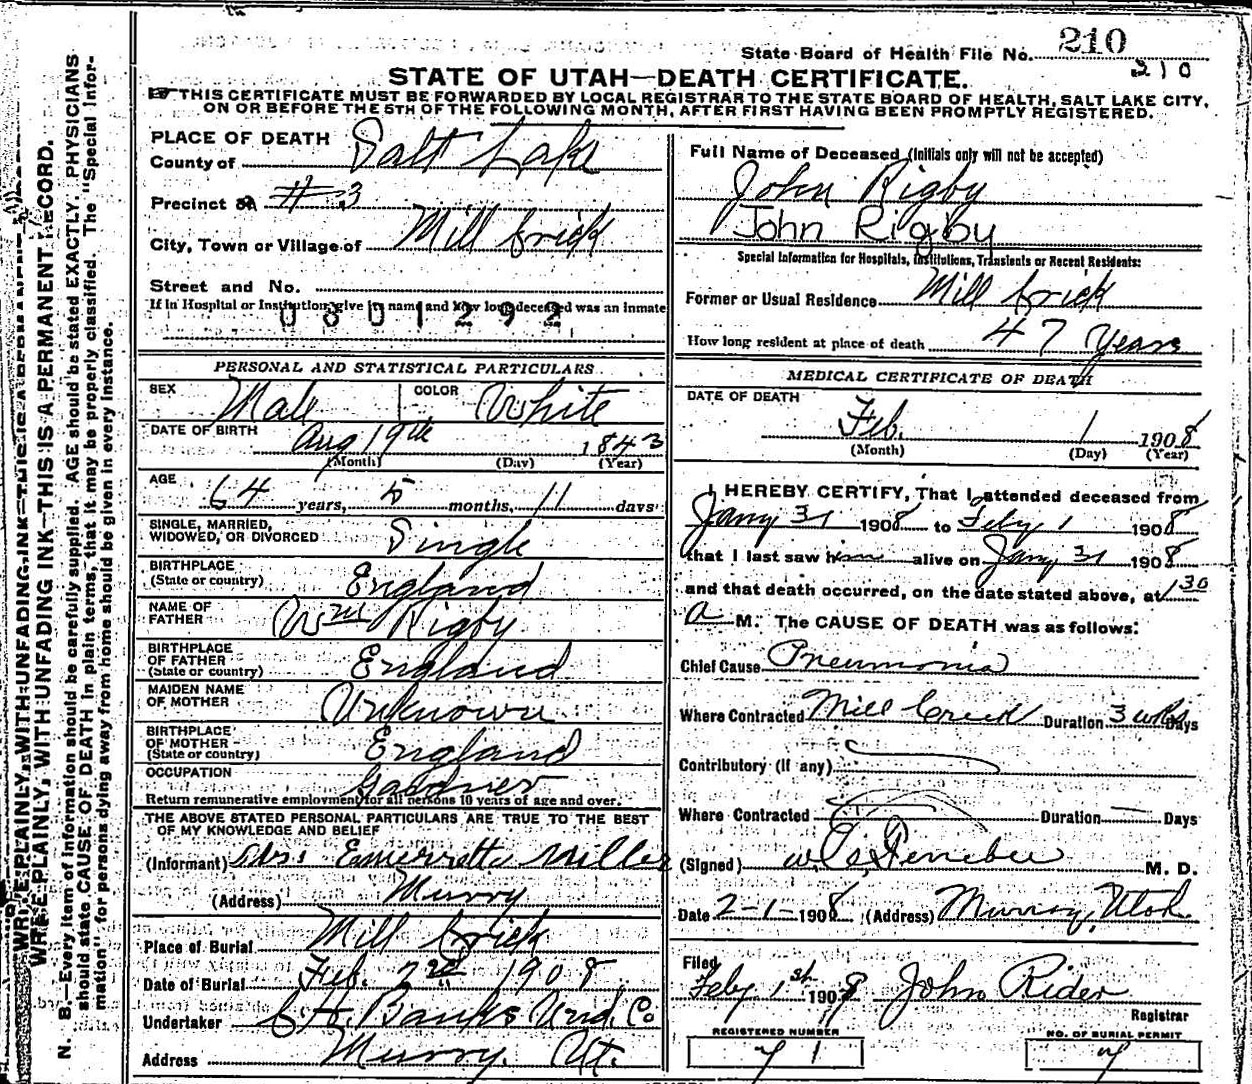 State Board of Health File No. 210
210
STATE OF UTAH—DEATH CERTIFICATE.
THIS CERTIFICATE MUST BE FORWARDED BY LOCAL REGISTRAR TO THE STATE BOARD OF HEALTH, SALT LAKE CITY,
ON OR BEFORE THE 5TH OF THE FOLLOWING MONTH, AFTER FIRST HAVING BEEN PROMPTLY REGISTERED.
WRITE PLAINLY, WITH UNFADING INK—THIS IS A PERMANENT RECORD.
N. B.—Every item of information should be carefully supplied. AGE should be stated EXACTLY. PHYSICIANS
should state CAUSE OF DEATH in plain terms, that it may be properly classified. The "Special Infor-
mation" for persons dying away from home should be given in every instance.
PLACE OF DEATH
County of Salt Lake
Precinct #3
City, Town or Village of Mill Crick
Street and No.
If in Hospital or Institution, give its name and how long deceased was an inmate
0801292
PERSONAL AND STATISTICAL PARTICULARS
SEX Male COLOR White
DATE OF BIRTH Aug 19th 1843
(Month) (Day) (Year)
AGE 64 years, 5 months, 11 days
SINGLE, MARRIED,
WIDOWED, OR DIVORCED Single
BIRTHPLACE
(State or country) England
NAME OF
FATHER Wm Rigby
BIRTHPLACE
OF FATHER
(State or country) England
MAIDEN NAME
OF MOTHER Unknown
BIRTHPLACE
OF MOTHER
(State or country) England
OCCUPATION Gardner
Return remunerative employment for all persons 10 years of age and over.
THE ABOVE STATED PERSONAL PARTICULARS ARE TRUE TO THE BEST
OF MY KNOWLEDGE AND BELIEF
(Informant) Mrs. Emerretta Miller
(Address) Murry
Place of Burial Mill Crick
Date of Burial Feb. 2nd 1908
Undertaker Banks Und. Co
Address Murry. Ut.
Full Name of Deceased (Initials only will not be accepted)
John Rigby
John Rigby
Special Information for Hospitals, Institutions, Transients or Recent Residents:
Former or Usual Residence Mill Crick
How long resident at place of death 47 Years
MEDICAL CERTIFICATE OF DEATH
DATE OF DEATH
Feb. 1 1908
(Month) (Day) (Year)
I HEREBY CERTIFY, That I attended deceased from
Jany 31 1908 to Feby 1 1908
that I last saw him alive on Jany 31 1908
and that death occurred, on the date stated above, at 1 30
a M. The CAUSE OF DEATH was as follows:
Chief Cause Pneumonia
Where Contracted Mill Creek Duration 3 wks Days
Contributory (if any)
Where Contracted Duration — Days
(Signed) M. D.
Date 2-1-1908 (Address) Murray, Utah
Filed
Feby 1st 1908 John Rider
Registrar
REGISTERED NUMBER
71
NO. OF BURIAL PERMIT